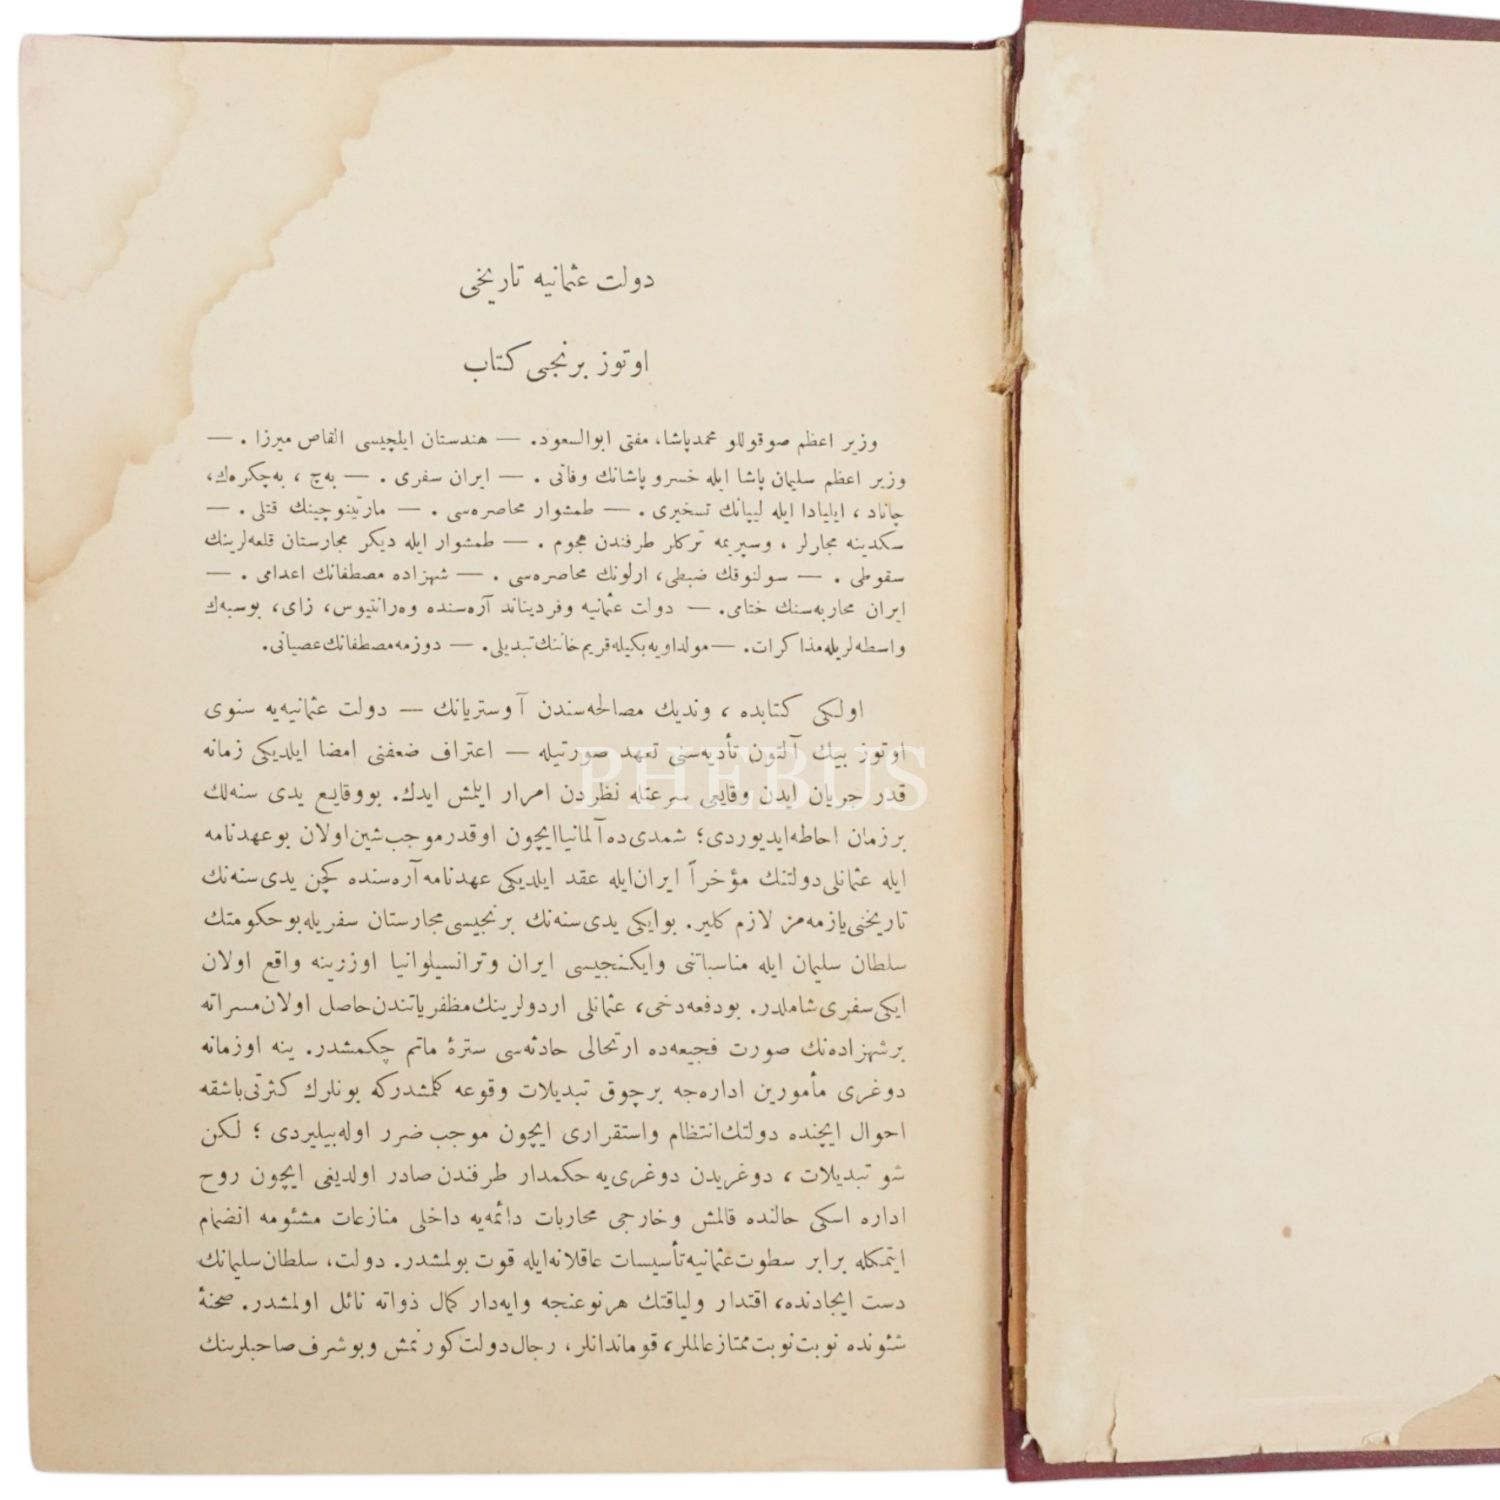 دولت عثمانیه تاریخی
اوتوز برنجی کتاب
وزیر اعظم صوقوللو محمدپاشا، مفتی ابوالسعود. — هندستان ایلچیسی القاص میرزا . —
وزیر اعظم سلیمان پاشا ایله خسرو پاشانك وفاتی . — ایران سفری . — به‌چ ، به‌چکره‌ك،
چاناد ، ایلیادا ایله لیپانك تسخیری . — طمشوار محاصره‌سی . — مارتینوچینك قتلی . —
سکدینه مجارلر ، وسپریمه ترکلر طرفندن هجوم . — طمشوار ایله دیکر مجارستان قلعه‌لرینك
سقوطی . — سولنوقك ضبطی، ارلونك محاصره‌سی . — شهزاده مصطفانك اعدامی . —
ایران محاربه‌سنك ختامی. — دولت عثمانیه وفردیناند آره‌سنده وه‌رانتیوس، زای، بوسبه‌ك
واسطه‌لریله مذاکرات. — مولداویه بکیله قریم خاننك تبدیلی. — دوزمه مصطفانك عصیانی.
اولکی کتابده ، وندیك مصالحه‌سندن آوستریانك — دولت عثمانیه‌یه سنوی
اوتوز بیك آلتون تأدیه‌سنی تعهد صورتیله — اعتراف ضعفنی امضا ایلدیکی زمانه
قدر جریان ایدن وقایعی سرعتله نظردن امرار ایلمش ایدك. بووقایع یدی سنه‌لك
برزمان احاطه ایدیوردی؛ شمدی ده آلمانیا ایچون اوقدر موجب شین اولان بوعهدنامه
ایله عثمانلی دولتنك مؤخراً ایران ایله عقد ایلدیکی عهدنامه آره‌سنده کچن یدی سنه‌نك
تاریخنی یازمه‌مز لازم کلیر. بوایکی یدی سنه‌نك برنجیسی مجارستان سفریله بوحکومتك
سلطان سلیمان ایله مناسباتنی وایکنجیسی ایران وترانسیلوانیا اوزرینه واقع اولان
ایکی سفری شاملدر. بودفعه دخی، عثمانلی اردولرینك مظفریاتندن حاصل اولان مسراته
برشهزاده‌نك صورت فجیعه‌ده ارتحالی حادثه‌سی سترهٔ ماتم چکمشدر. ینه اوزمانه
دوغری مأمورین اداره‌جه برچوق تبدیلات وقوعه کلمشدرکه بونلرك کثرتی باشقه
احوال ایچنده دولتك انتظام واستقراری ایچون موجب ضرر اوله‌بیلیردی ؛ لکن
شو تبدیلات ، دوغریدن دوغری‌یه حکمدار طرفندن صادر اولدیغی ایچون روح
اداره اسکی حالنده قالمش وخارجی محاربات دائمه‌یه داخلی منازعات مشئومه انضمام
ایتمکله برابر سطوت عثمانیه تأسیسات عاقلانه ایله قوت بولمشدر. دولت، سلطان سلیمانك
دست ایجادنده، اقتدار ولیاقتك هرنوعنجه وایه‌دار کمال ذواته نائل اولمشدر. صحنهٔ
شئونده نوبت نوبت ممتاز عالملر، قوماندانلر، رجال دولت کورنمش وبوشرف صاحبلرینك
PHEBUS